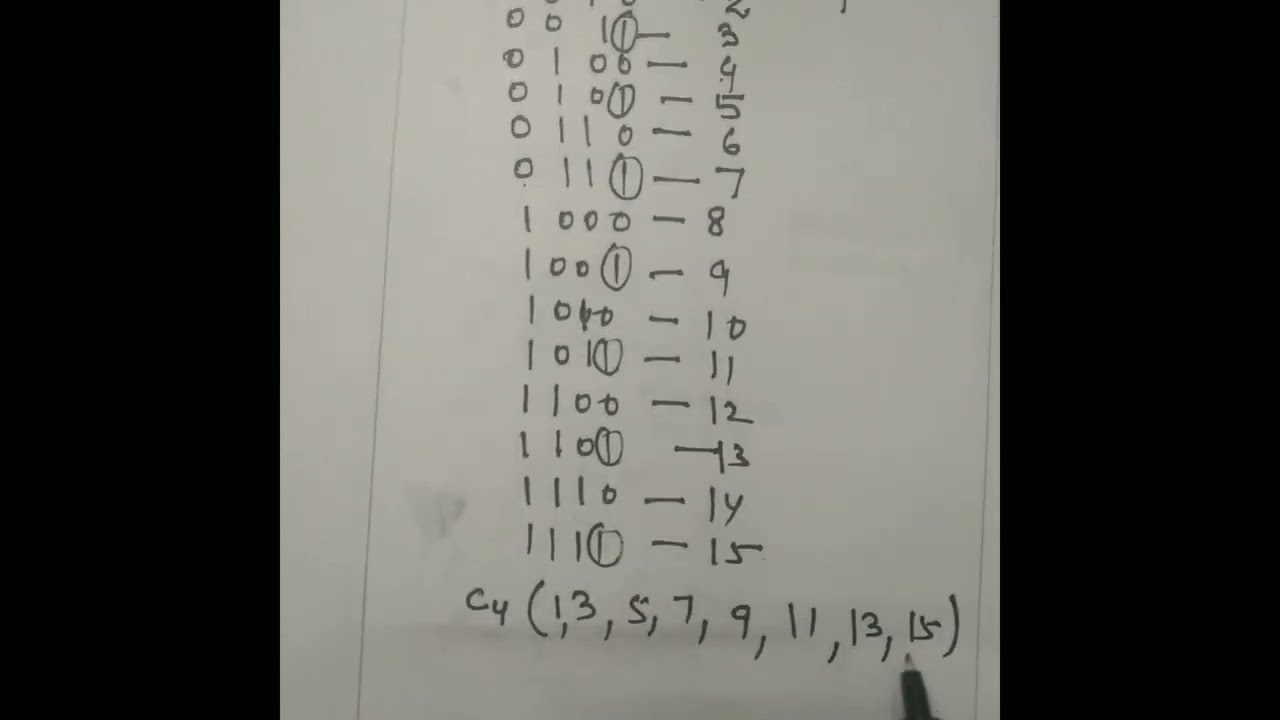 0 0 1 1 — 3
0 1 0 0 — 4
0 1 0 1 — 5
0 1 1 0 — 6
0 1 1 1 — 7
1 0 0 0 — 8
1 0 0 1 — 9
1 0 1 0 — 10
1 0 1 1 — 11
1 1 0 0 — 12
1 1 0 1 — 13
1 1 1 0 — 14
1 1 1 1 — 15
C4 (1,3, 5, 7, 9, 11, 13, 15)